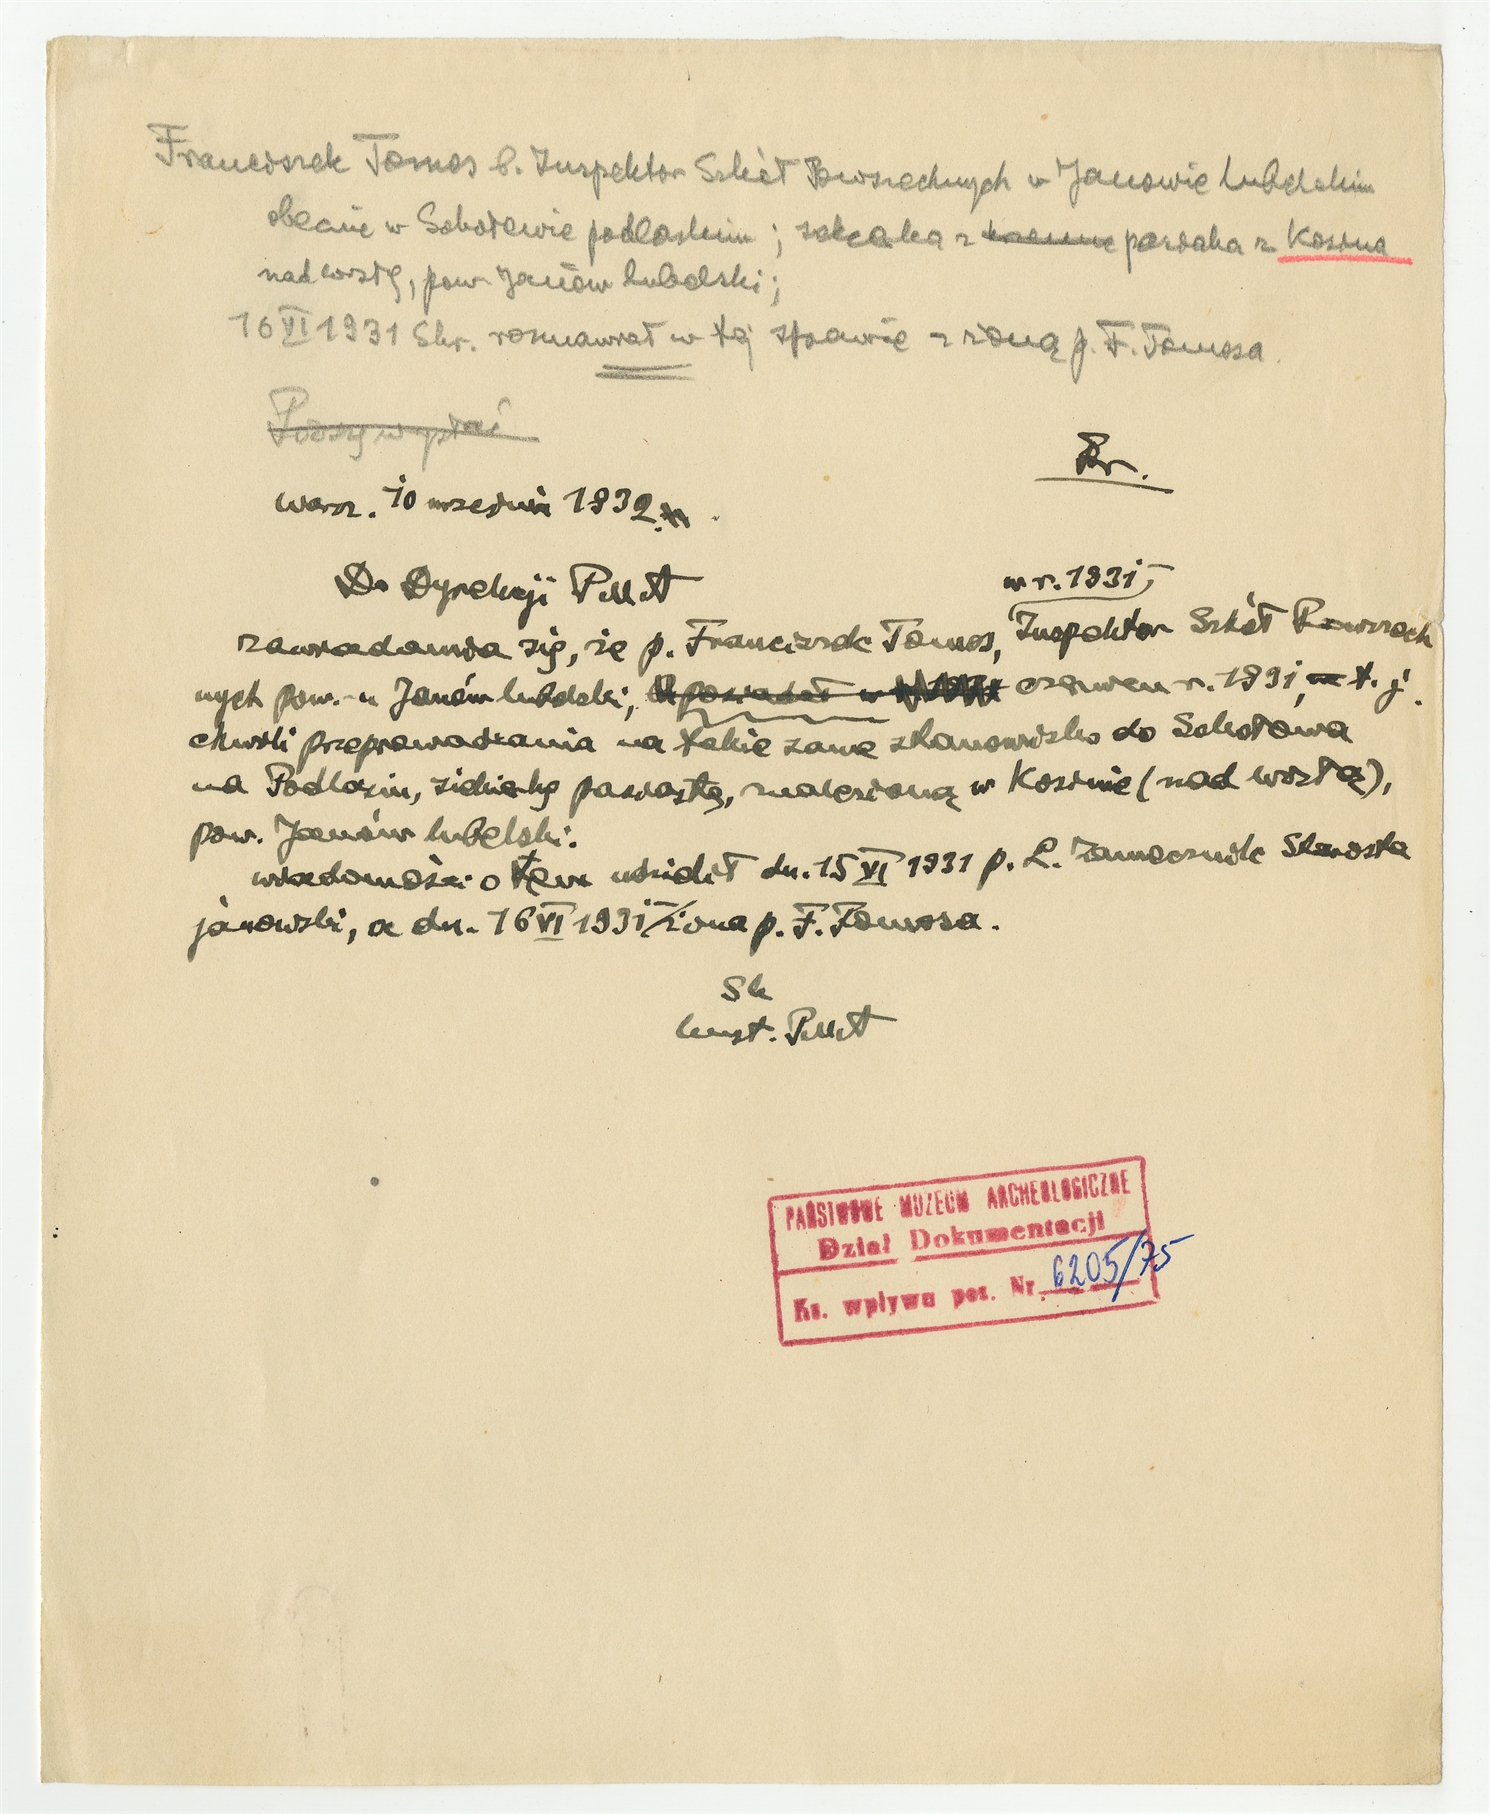 Franciszek Tomos b. Inspektor Szkół Powszechnych w Janowie Lubelskim
obecnie w Sokołowie podlaskim; z pasiaka z Kosina
nad Wisłą, pow. Janów Lubelski;
16 VI 1931 Skr. rozmawiał w tej sprawie z żoną p. F. Tomosa.
Proszę wysłać
Kr.
Warsz. 10 września 1932
Do Dyrekcji PMA
w r. 1931,
zawiadamia się, że p. Franciszek Tomos, Inspektor Szkół Powszech
nych pow. Janów lubelski, posiadał w czerwcu r. 1931, t. j.
chwili przeprowadzania na takie same stanowisko do Sokołowa
na Podlasiu, siekierkę pasiastą, znalezioną w Kosinie (nad Wisłą),
pow. Janów lubelski.
wiadomości o tem udzielił dn. 15 VI 1931 p. L. Zamecznik Starosta
janowski, a dn. 16 VI 1931 żona p. F. Tomosa.
Sk
kust. PMA
PAŃSTWOWE MUZEUM ARCHEOLOGICZNE
Dział Dokumentacji
Ks. wpływu poz. Nr. 6205/75